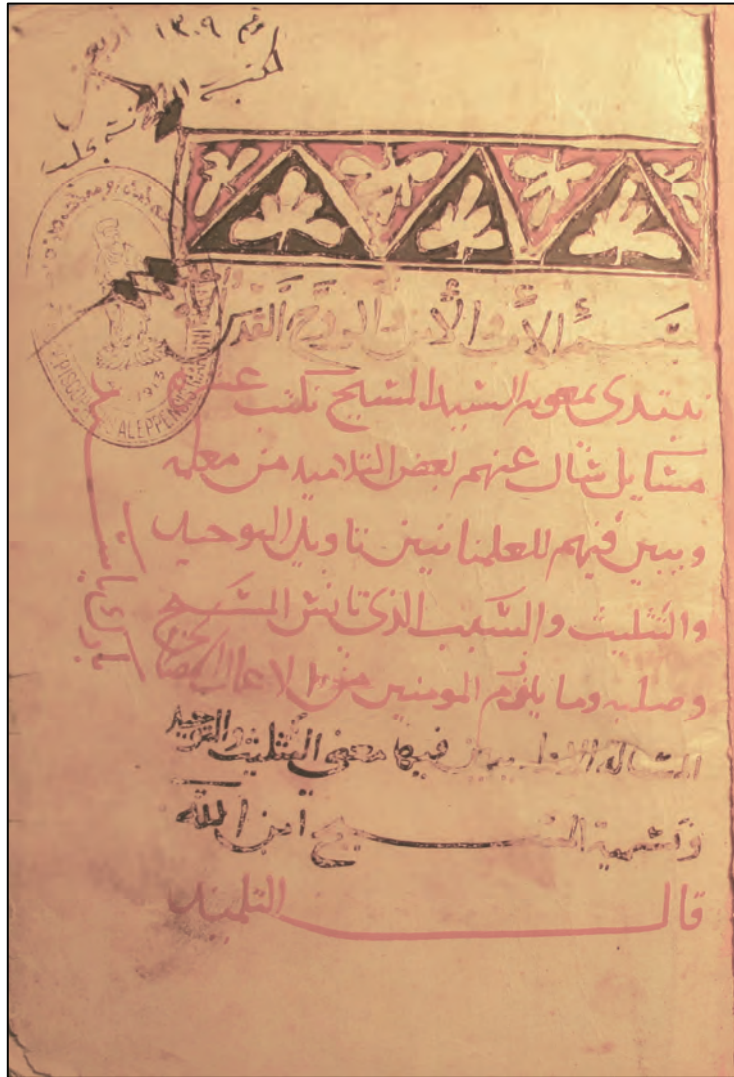 رقم ١٣٠٩
لمكتبة
بحلب
EPISCOPATUS ALEPPENSIS MARONIT
1913
بسم الأب والأبن والروح القدس
نبتدى بمعونه السيد المسيح نكتب عشر
مسايل سال عنهم لبعض التلاميد من معلمه
ويبين فيهم للعلمانيين تاويل التوحيد
والتثليث والسبب الذى تانس المسيح
وصلبه وما يلزم المومنين من الاعمال الصالحه
المساله الاوله يبين فيها معنى التثليث والتوحيد
وتسمية المسيح ابن الله
قال التلميد